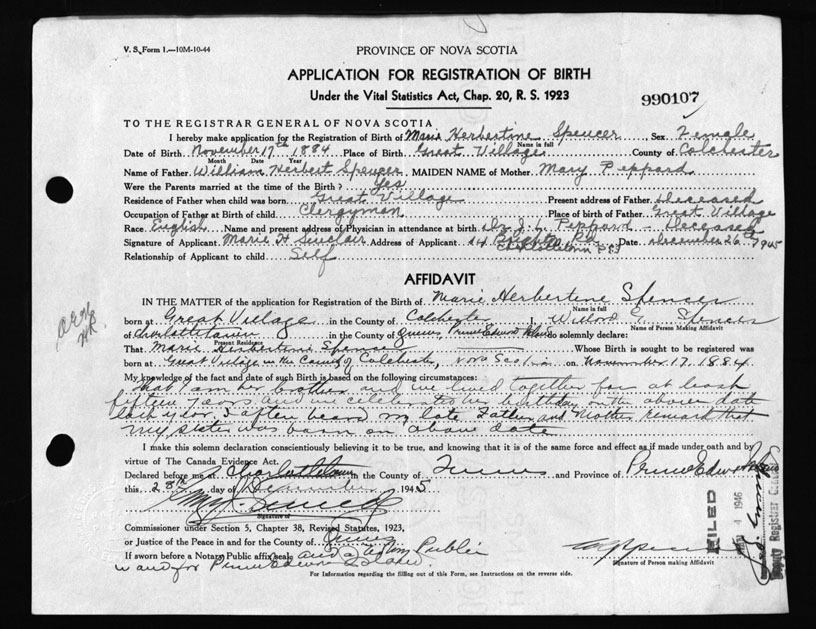 V. S. Form 1.—10M-10-44
PROVINCE OF NOVA SCOTIA
APPLICATION FOR REGISTRATION OF BIRTH
Under the Vital Statistics Act, Chap. 20, R. S. 1923
990107
TO THE REGISTRAR GENERAL OF NOVA SCOTIA
I hereby make application for the Registration of Birth of Marie Herbertine Spencer, Sex Female
Name in full
Date of Birth November 17th 1884 Place of Birth Great Village County of Colchester
Month Date Year
Name of Father William Herbert Spencer MAIDEN NAME of Mother Mary Peppard
Were the Parents married at the time of the Birth? Yes
Residence of Father when child was born Great Village Present address of Father Deceased
Occupation of Father at Birth of child Clergyman Place of birth of Father Great Village
Race English Name and present address of Physician in attendance at birth Dr. J. L. Peppard - Deceased
Signature of Applicant Marie H Sinclair Address of Applicant 14 Brighton Rd Date December 26th 1945
Charlottetown P E I
Relationship of Applicant to child Self
AFFIDAVIT
IN THE MATTER of the application for Registration of the Birth of Marie Herbertine Spencer
Name in full
born at Great Village in the County of Colchester I, Spencer
Name of Person Making Affidavit
of Charlottetown in the County of Queens, Prince Edward Island do solemnly declare:
Present Residence
That Marie Herbertine Spencer Whose Birth is sought to be registered was
born at Great Village in the County of Colchester, Nova Scotia on November 17, 1884
My knowledge of the fact and date of such Birth is based on the following circumstances:
that I am her brother and we lived together for at least
fifteen years and we celebrated her birthday on the above date
each year. I often heard my late Father and Mother remark that
my sister was born on above date
I make this solemn declaration conscientiously believing it to be true, and knowing that it is of the same force and effect as if made under oath and by
virtue of The Canada Evidence Act.
Declared before me at Charlottetown in the County of Queens and Province of Prince Edward Island
this 28th day of December 1945
Signature of
Commissioner under Section 5, Chapter 38, Revised Statutes, 1923,
or Justice of the Peace in and for the County of Queens
If sworn before a Notary Public affix seal. and a Notary Public
in and for Prince Edward Island.
Signature of Person making Affidavit
For Information regarding the filling out of this Form, see Instructions on the reverse side.
FILED
4 1946
Deputy Registrar